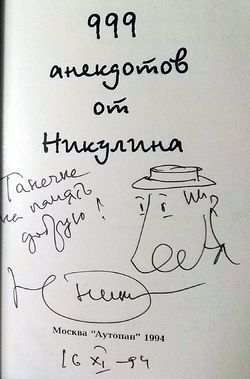 999
анекдотов
от
Никулина
Танечке
на память
добрую!
Ю. Ник
Москва "Аутопан" 1994
16 XI –94